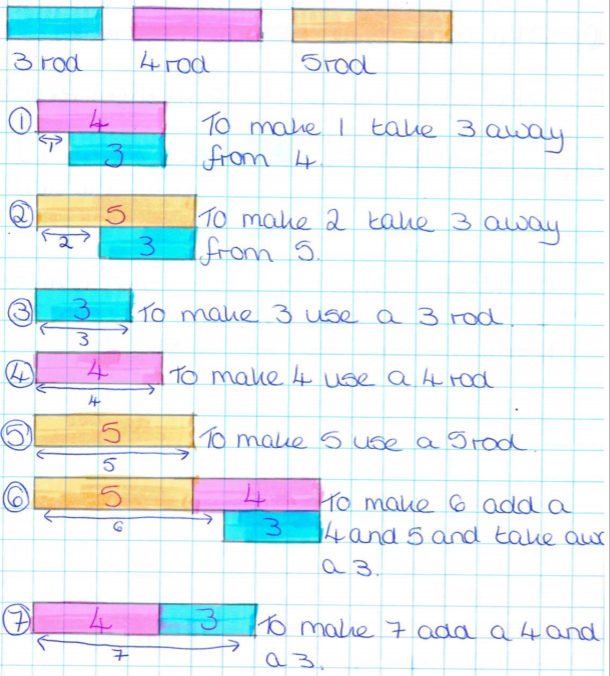 3 rod 4 rod 5 rod
① 4
1
3
To make 1 take 3 away
from 4.
② 5
2
3
To make 2 take 3 away
from 5.
③ 3
3
To make 3 use a 3 rod.
④ 4
4
To make 4 use a 4 rod
⑤ 5
5
To make 5 use a 5 rod.
⑥ 5 4
6
3
To make 6 add a
4 and 5 and take
a 3.
⑦ 4 3
7
To make 7 add a 4 and
a 3.